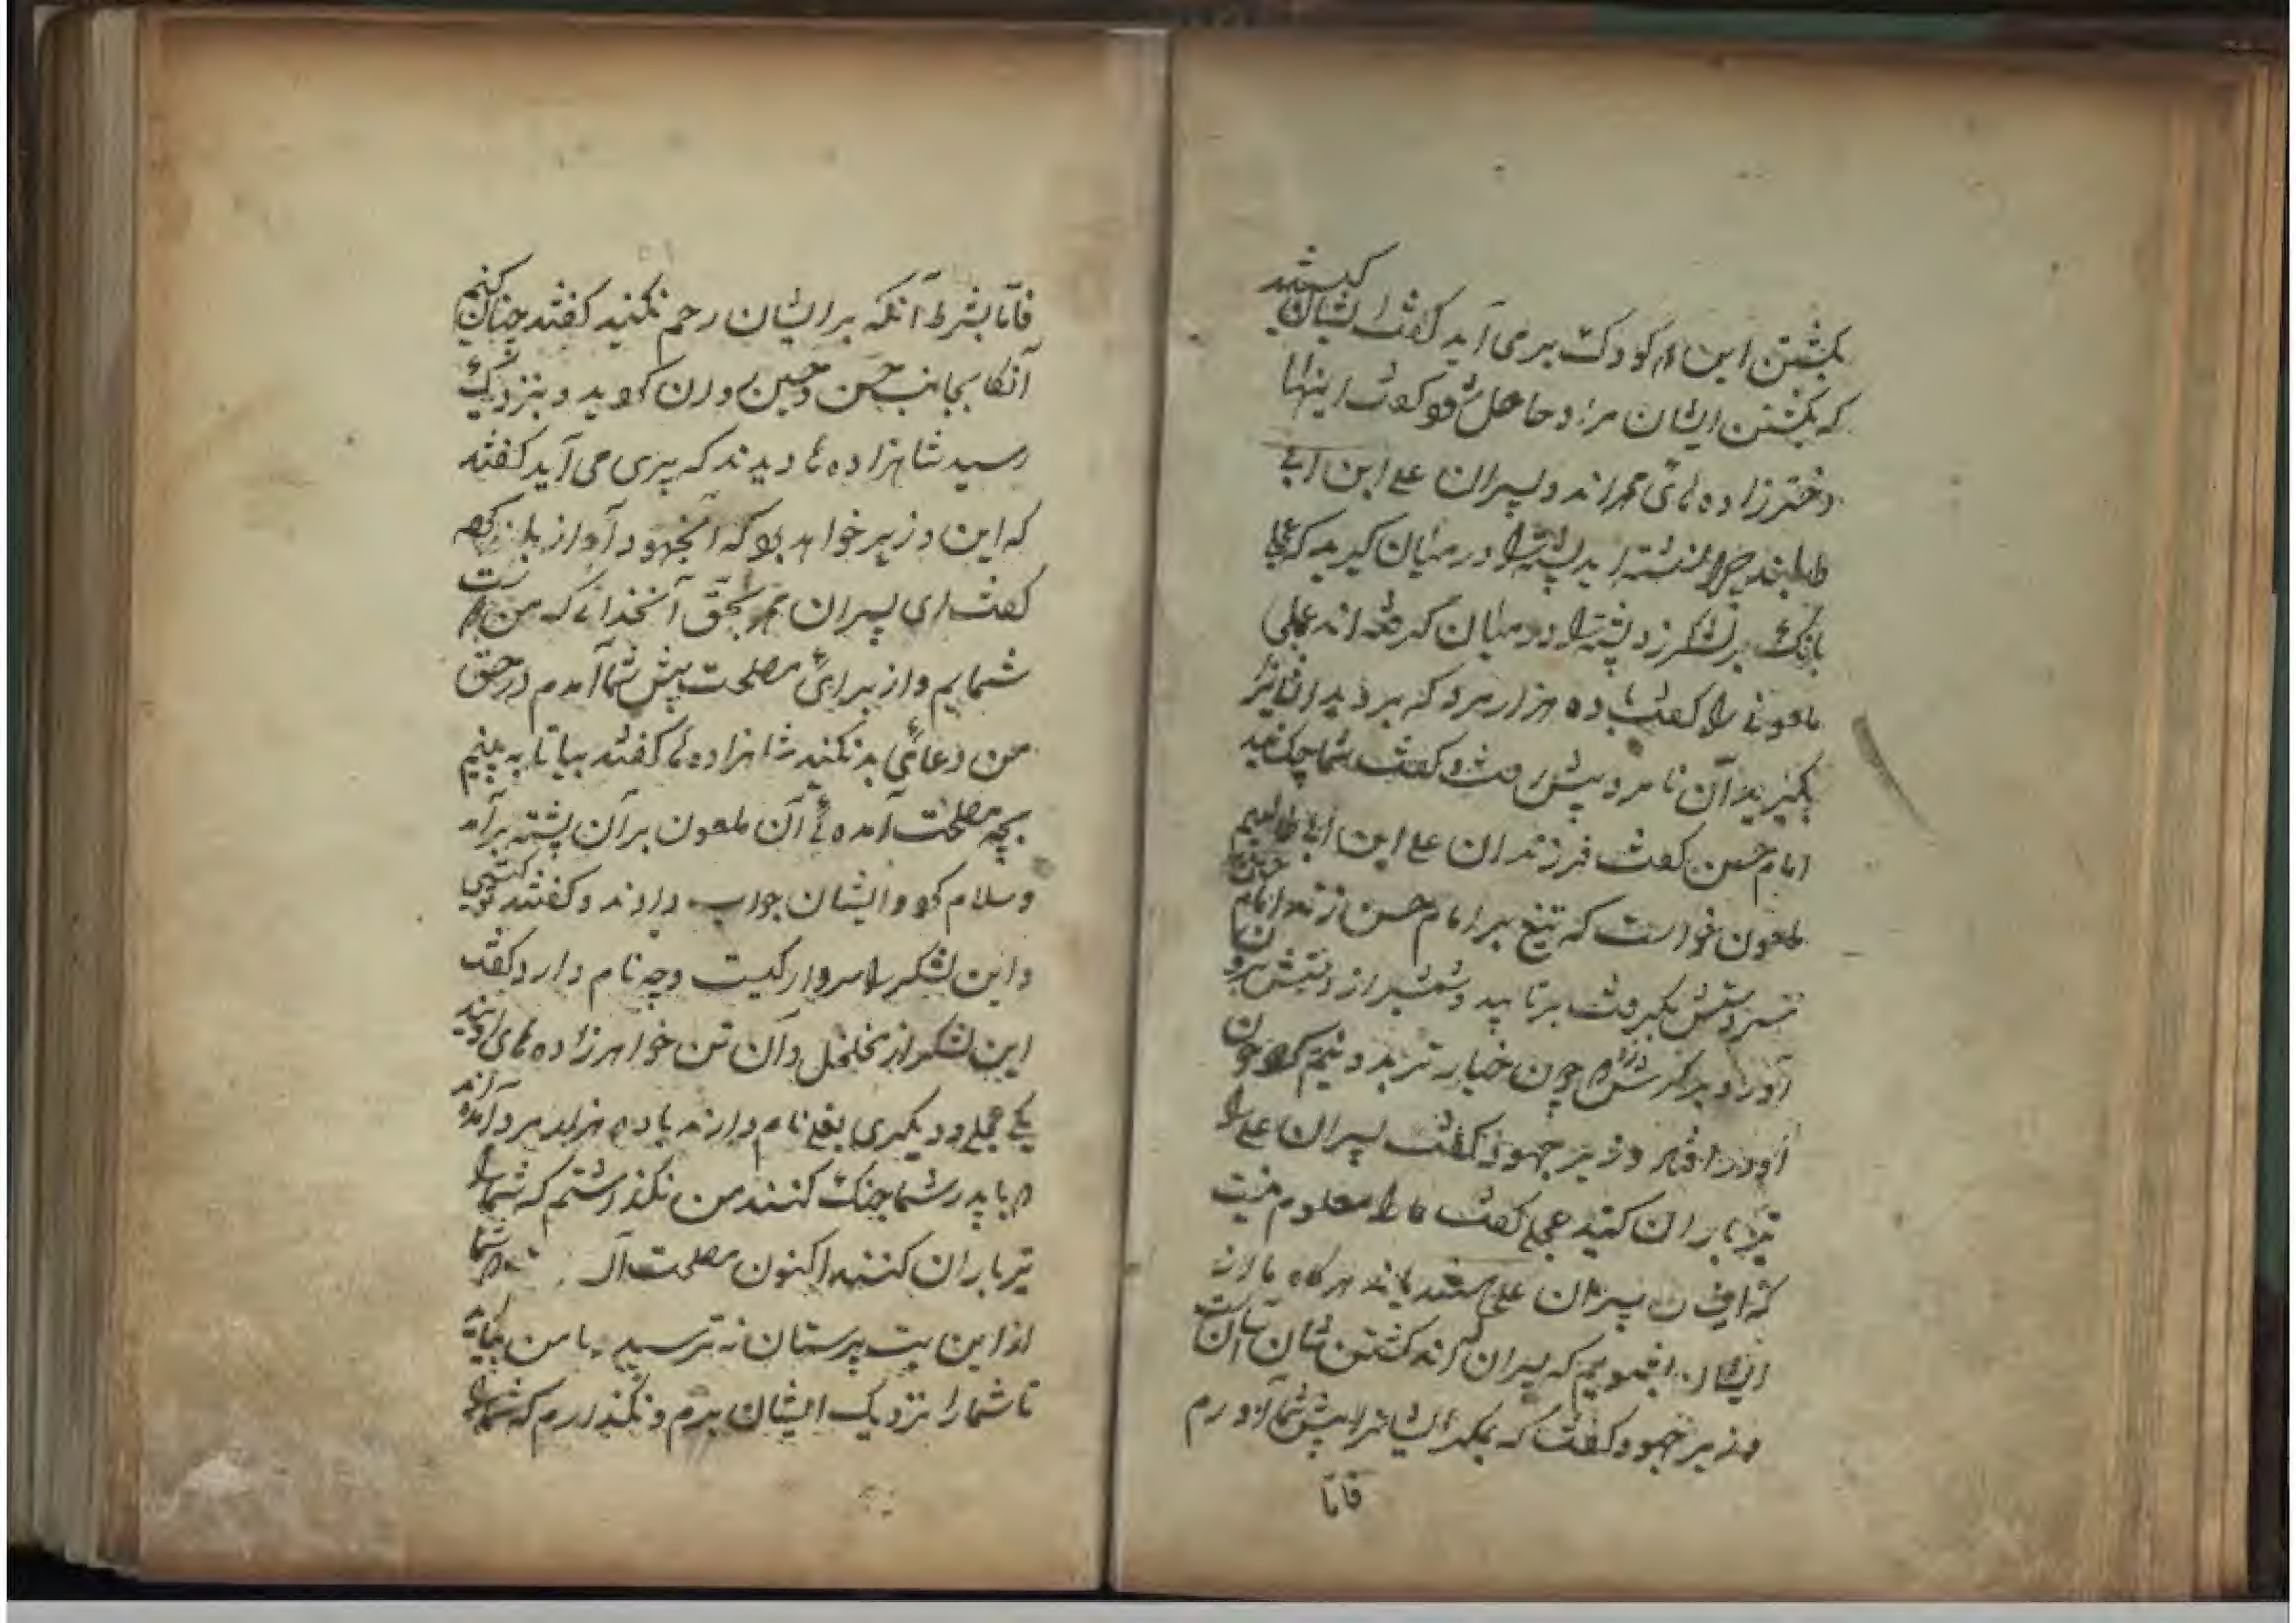 بکشتن این دو کودک برمی آید گفت ایشان را بکشید
که بکشتن ایشان مراد حاصل شود گفت اینها
دخترزاده های محمد اند و پسران علی ابن ابی
طالبند چرا نشسته اید پشته را در میان گیرید که عجلی
بانک بر لشکر زد پشته را در میان گرفته اند عجلی
ملعونی را گفت با ده هزار مرد که بر دید ایشانرا
بگیرید آن نامرد پیش رفت و گفت شما چکسانید
امام حسن گفت فرزندان علی ابن ابی طالبیم
ملعون خواست که تیغ بر امام حسن زند امام
دستش بگرفت برتابید و شمشیر از دستش
آورد و بر کمرش زد چون خیار تر بدو نیم کرد چون
وزیر جهود گفت پسران علی را
تیر باران کنید عجلی گفت ما را معلوم نیست
که ایشان پسران علی باشند هرگاه ما
که پسران کشتن شان آسان است
وزیر جهود گفت که مکر ایشانرا پیش شما آورم
فاما
فاما بشرط آنکه بر ایشان رحم نکنید گفتند چنان کنیم
آنگا بجانب حسن و حسین روان گردید و بنزدیک
رسید شاهزاده ها دیدند که پیری می آید گفتند
که این وزیر خواهد بود که آنجهود آواز بلند کرد
گفت ای پسران محمد بحق آنخدائے که من دوست
شمایم و از برائے مصلحت پیش شما آمدم در حق
من دعائے بد نکنید شاهزاده ها گفتند بیا تا به بینیم
بچه مصلحت آمده ئے آن ملعون بر آن پشته برآمد
وسلام کرد و ایشان جواب دادند و گفتند تو کیستی
و این لشکر را سردار کیست و چه نام دارد گفت
این لشکر از نخلخل و آن تن خواهرزاده های اویند
یکے عجلے و دیگری بغلے نام دارند با ده هزار مرد آمده اند
که با پدر شما جنگ کنند من نگذاشتم که شما را
تیر باران کنند اکنون مصلحت شما
از این بت پرستان نه ترسید با من بیائید
تا شما را نزدیک ایشان برم و نگذارم که شما را